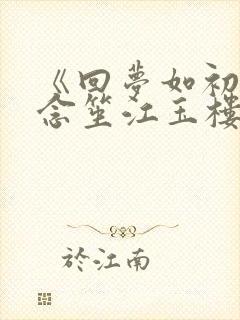 《回夢如初
念笙江玉樓
於江南